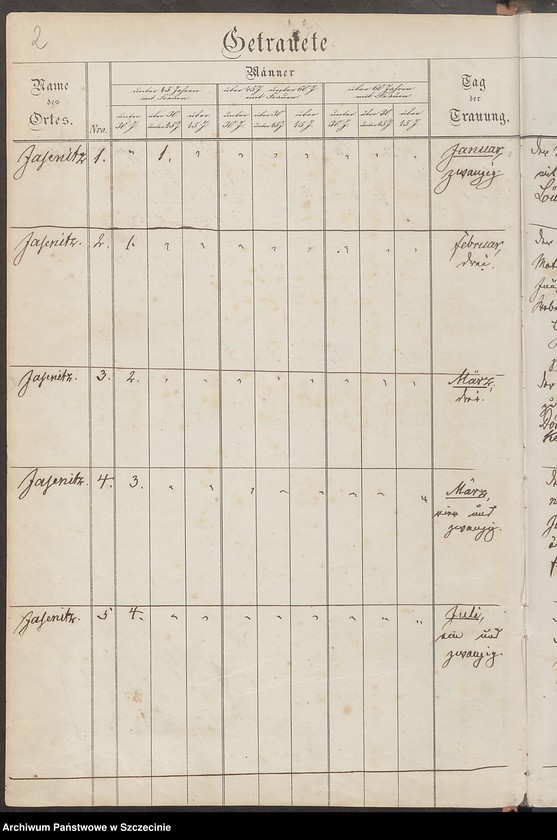 2
Getrauete
Männer
Name
des
Ortes.
Nro.
unter 45 Jahren
mit Frauen
über 45 J. unter 60 J.
mit Frauen
über 60 Jahren
mit Frauen
unter
30 J.
über 30
unter 45 J
über
45 J.
unter
30 J.
über 30
unter 45 J
über
45 J.
unter
30 J.
über 30
unter 45 J
über
45 J.
Tag
der
Trauung.
Jasenitz 1. " 1. " " " " " " " Januar,
zwanzig
Jasenitz. 2. 1. " " " " " " " " Februar,
drei.
Jasenitz. 3. 2. " " " " " " " " März,
drei.
Jasenitz. 4. 3. " " " " " " " " März,
ein und
zwanzig.
Jasenitz. 5 4. " " " " " " " " Juli,
ein und
zwanzig.
Archiwum Państwowe w Szczecinie